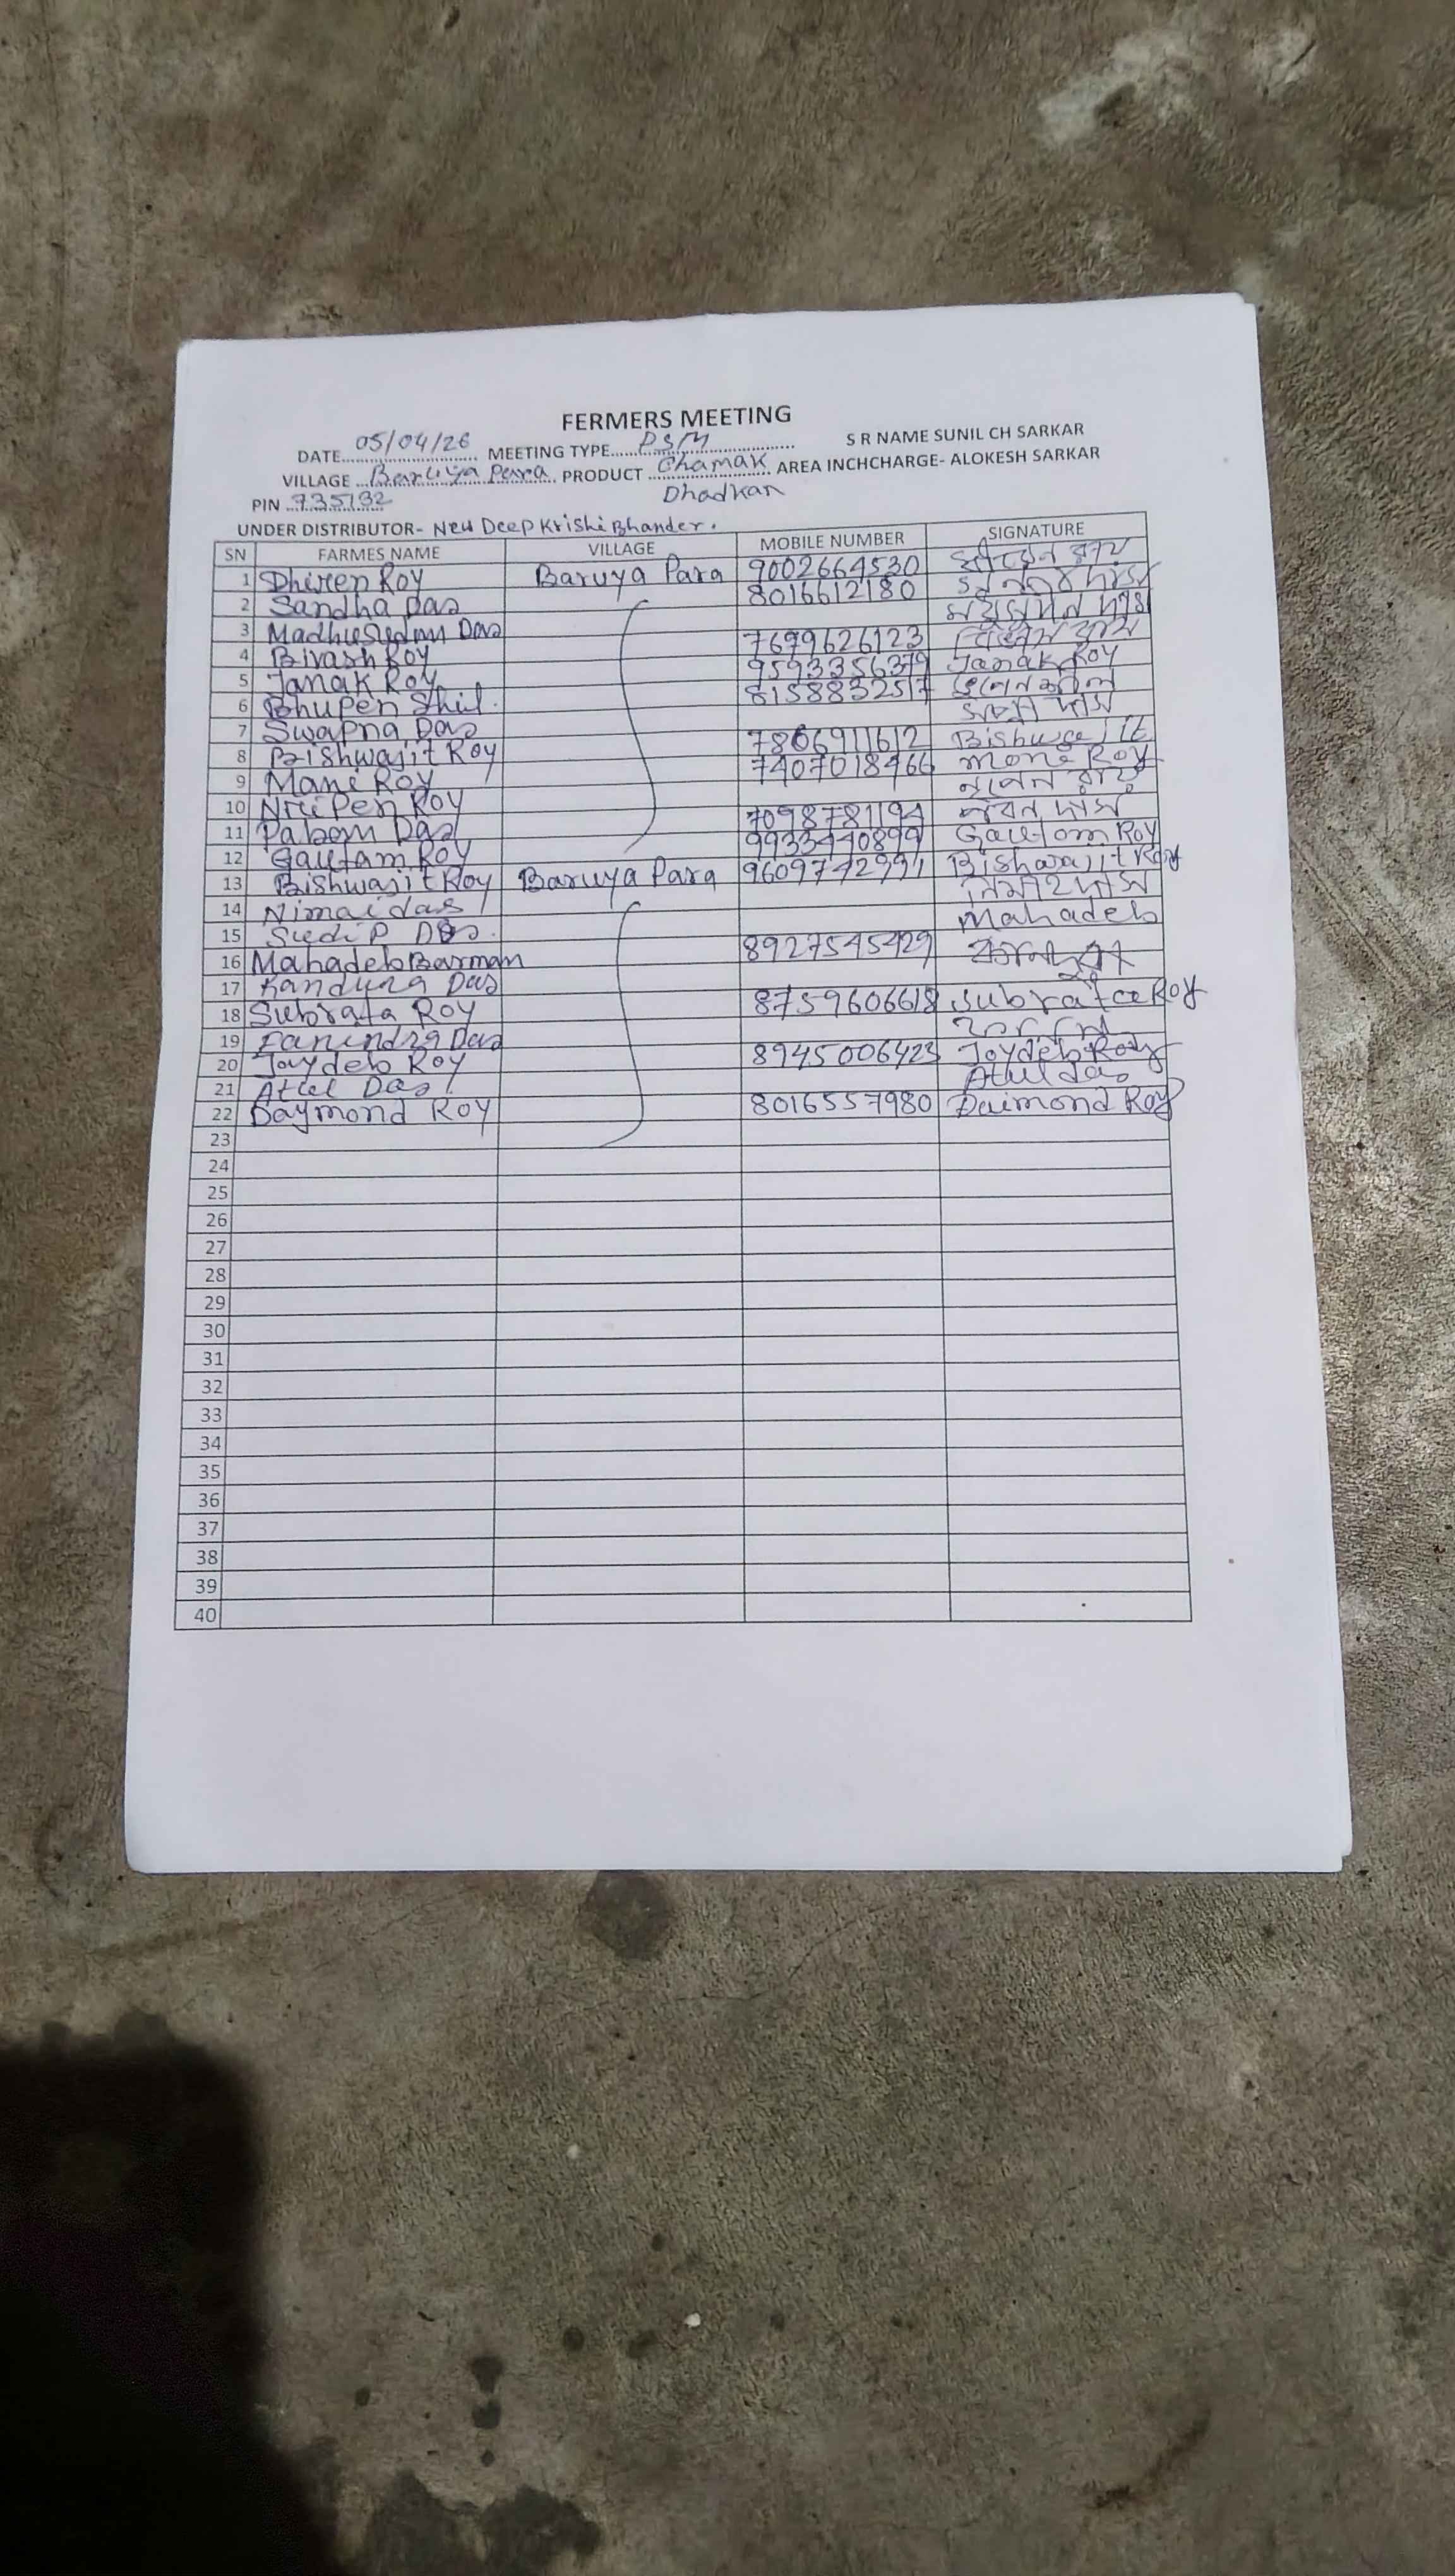 FERMERS MEETING
DATE 05/04/26 MEETING TYPE PSM S R NAME SUNIL CH SARKAR
VILLAGE Baruya Para PRODUCT Chamak AREA INCHCHARGE- ALOKESH SARKAR
PIN 735132 Dhadkan
UNDER DISTRIBUTOR- New Deep Krishi Bhander.
SN FARMES NAME VILLAGE MOBILE NUMBER SIGNATURE
1 Dhiren Roy Baruya Para 9002664530 ধীরেন রায়
2 Sandha Das 8016612180 দাস
3 Madhusudan Das মধুসুদন দাস
4 Bivash Roy 7699626123 রায়
5 Janak Roy 9593356379 Janak Roy
6 Bhupen Shil. 8158832517 ভূপেন শীল
7 Swapna Das স্বপ্না দাস
8 Bishwajit Roy 7806911612 Bishwajit
9 Mani Roy 7407018466 Mone Roy
10 Nripen Roy নৃপেন রায়
11 Pabom Das 7098781194 পবন দাস
12 Gautam Roy 9933440899 Gautom Roy
13 Bishwajit Roy Baruya Para 9609742991 Bishwajit Roy
14 Nimai das নিমাই দাস
15 Sudip Das.
16 Mahadeb Barman 8927545429 Mahadeb
17 Kandura Das
18 Subrata Roy 8759606618 Subrata Roy
19 Fanindra Das
20 Jaydeb Roy 8945006423 Joydeb Roy
21 Atul Das Atul das
22 Daymond Roy 8016557980 Daimond Roy
23
24
25
26
27
28
29
30
31
32
33
34
35
36
37
38
39
40